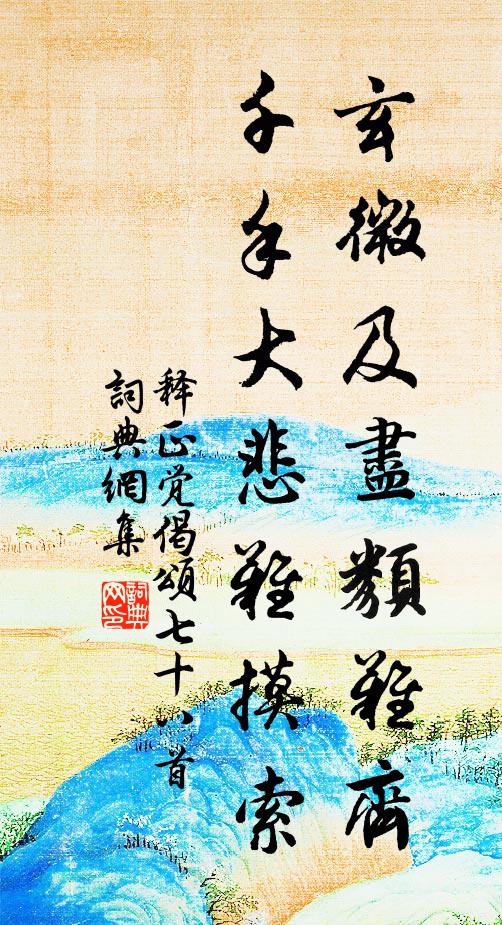 玄微及盡類難齊
千手大悲難摸索
释正觉偈颂七十八首
詞典網集
詞典